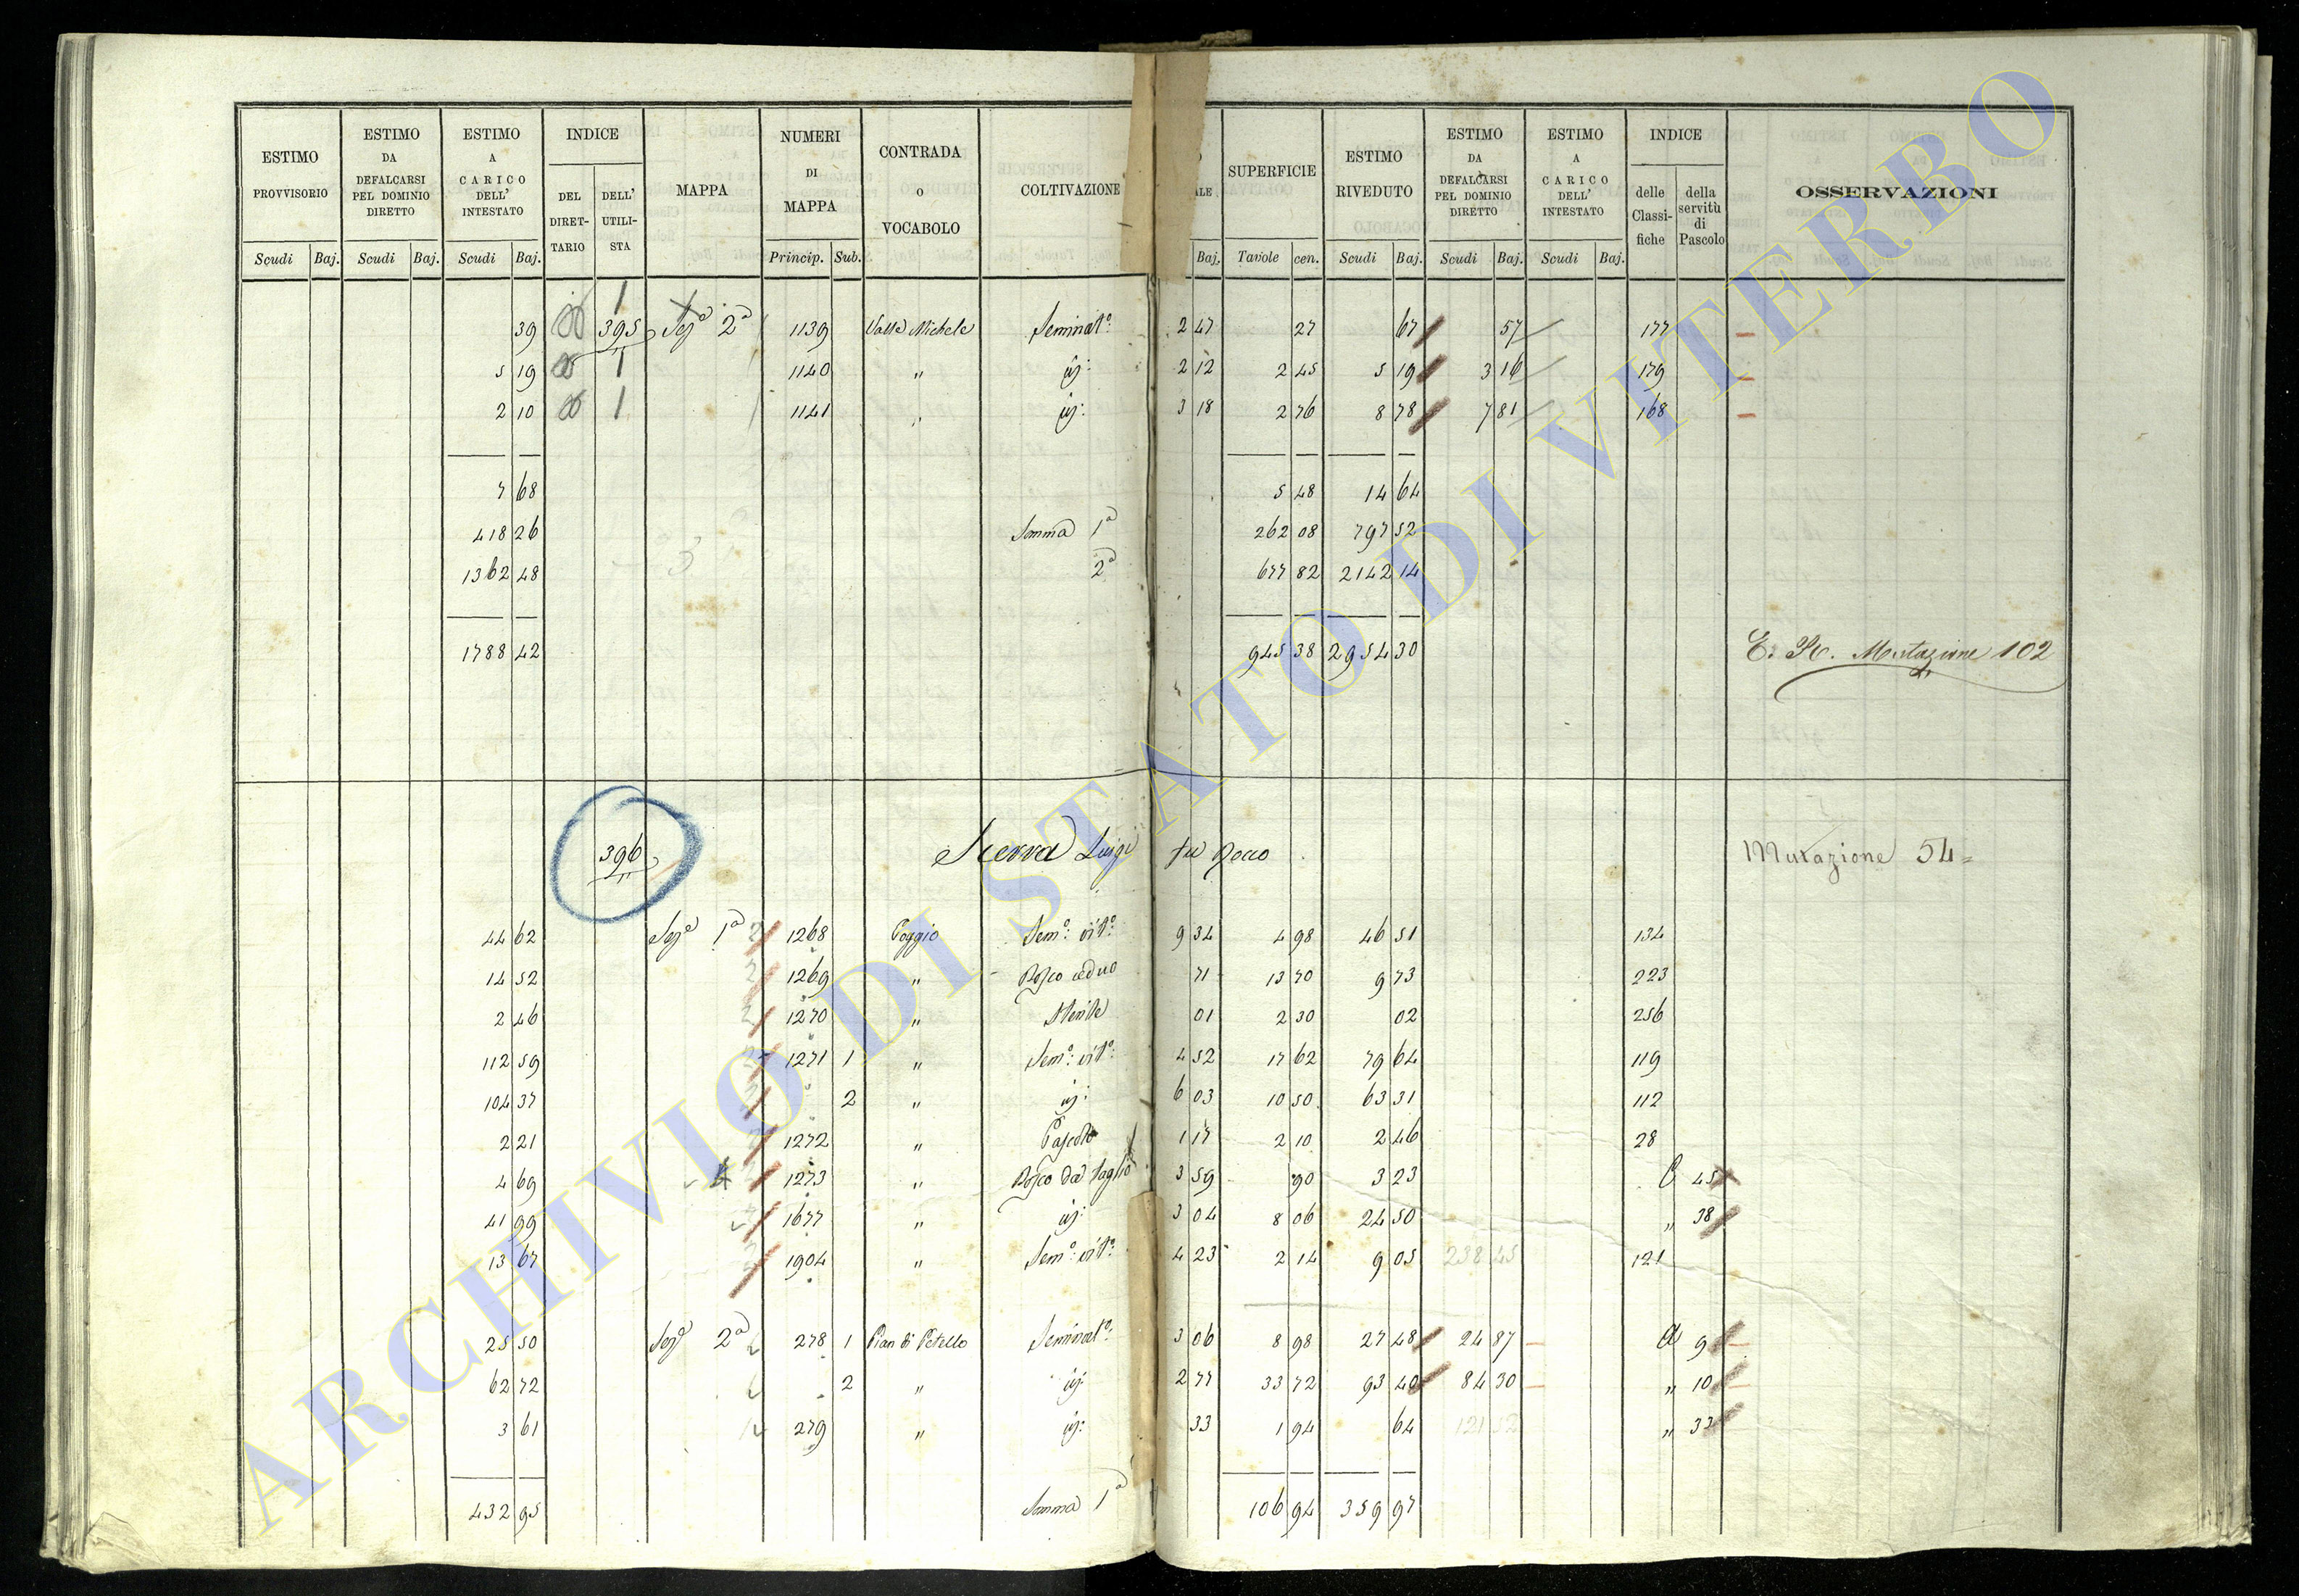 ESTIMO PROVVISORIO | ESTIMO DA DEFALCARSI PEL DOMINIO DIRETTO | ESTIMO A CARICO DELL' INTESTATO | INDICE DEL DIRETTARIO | DELL' UTILISTA | MAPPA | NUMERI DI MAPPA | CONTRADA o VOCABOLO | COLTIVAZIONE | ALE | SUPERFICIE | ESTIMO RIVEDUTO | ESTIMO DA DEFALCARSI PEL DOMINIO DIRETTO | ESTIMO A CARICO DELL' INTESTATO | INDICE delle Classifiche | della servitù di Pascolo | OSSERVAZIONI
Scudi Baj. | Scudi Baj. | Scudi Baj. | Princip. Sub. | Baj. | Tavole cen. | Scudi Baj. | Scudi Baj. | Scudi Baj.
39 | 395 | Sez.e 2a | 1139 | Valle Michele | Seminat.o | 2 47 | 27 | 67 | 57 | 177
5 19 | 1140 | " | id: | 2 12 | 2 45 | 5 19 | 3 16 | 179
2 10 | 1141 | " | id: | 3 18 | 2 76 | 8 78 | 7 81 | 168
7 68 | 5 48 | 14 64
418 26 | Somma 1a | 262 08 | 797 52
1362 48 | 2a | 677 82 | 2142 14
1788 42 | 945 38 | 2954 30 | Mutazione 102
396 | Scerra Luigi fu Rocco | Mutazione 54
44 62 | Sez.e 1a | 1268 | Poggio | Sem.o: vit.o: | 9 34 | 4 98 | 46 51 | 134
14 52 | 1269 | " | Bosco ceduo | 71 | 13 70 | 9 73 | 223
2 46 | 1270 | " | Sterile | 01 | 2 30 | 02 | 256
112 59 | 1271 | 1 | " | Sem.o: vit.o: | 4 52 | 17 62 | 79 64 | 119
104 37 | 2 | " | id: | 6 03 | 10 50 | 63 31 | 112
2 21 | 1272 | " | Pascolo | 1 17 | 2 10 | 2 46 | 28
4 69 | 1273 | " | Bosco da taglio | 3 59 | 90 | 3 23 | C 45
41 99 | 1677 | " | id: | 3 04 | 8 06 | 24 50 | " 38
13 67 | 1904 | " | Sem.o: vit.o: | 4 23 | 2 14 | 9 05 | 238 45 | 121
25 50 | Sez.e 2a | 278 | 1 | Pian di Petello | Seminat.o: | 3 06 | 8 98 | 27 48 | 24 87 | A 9
62 72 | 2 | " | id: | 2 77 | 33 72 | 93 40 | 84 30 | " 10
3 61 | 279 | " | id: | 33 | 1 94 | 64 | 121 52 | " 33
432 95 | Somma 1a | 106 94 | 359 97
ARCHIVIO DI STATO DI VITERBO